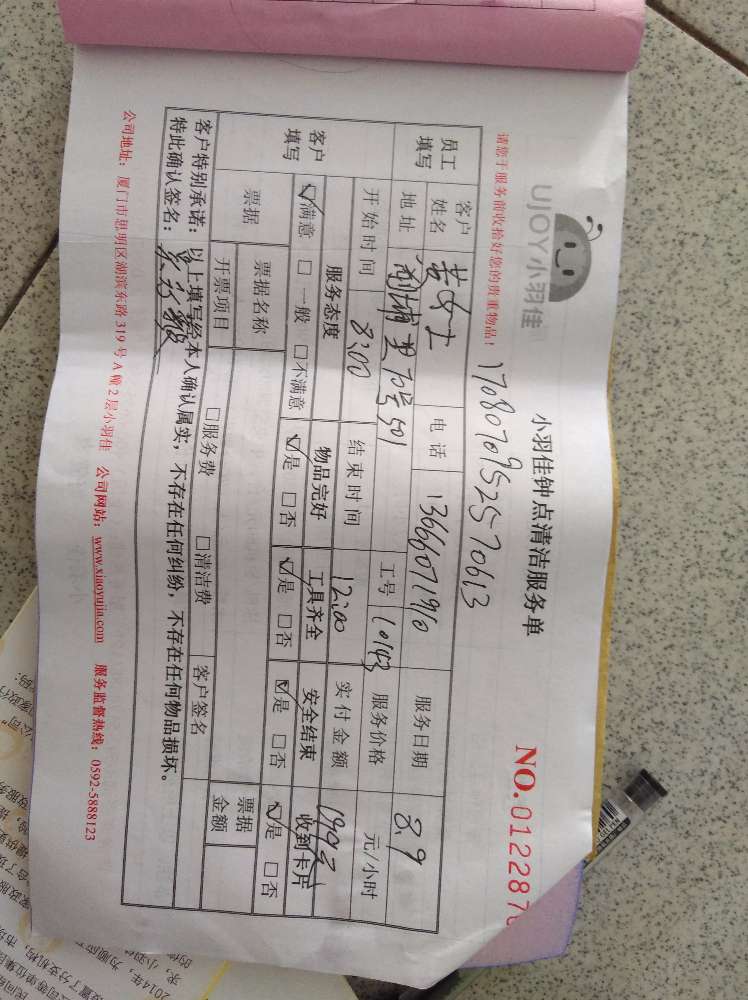 UJOY小羽佳
小羽佳钟点清洁服务单
NO.0122870
请您于服务前收拾好您的贵重物品！
17080709525570613
员工填写
客户姓名 女士 电话 13666071910 服务日期 8.9
地址 里70号501 工号 10143 服务价格 元/小时
开始时间 8:00 结束时间 12:00 实付金额
客户填写
服务态度 物品完好 工具齐全 安全结束 收到卡片
☑满意 □一般 □不满意 ☑是 □否 ☑是 □否 ☑是 □否 ☑是 □否
票据 票据名称 客户签名 票据金额
开票项目 □服务费 □清洁费
客户特别承诺：以上填写经本人确认属实，不存在任何纠纷，不存在任何物品损坏。
特此确认签名：
公司地址：厦门市思明区湖滨东路319号A幢2层小羽佳 公司网站：www.xiaoyujia.com 服务监督热线：0592-5888123